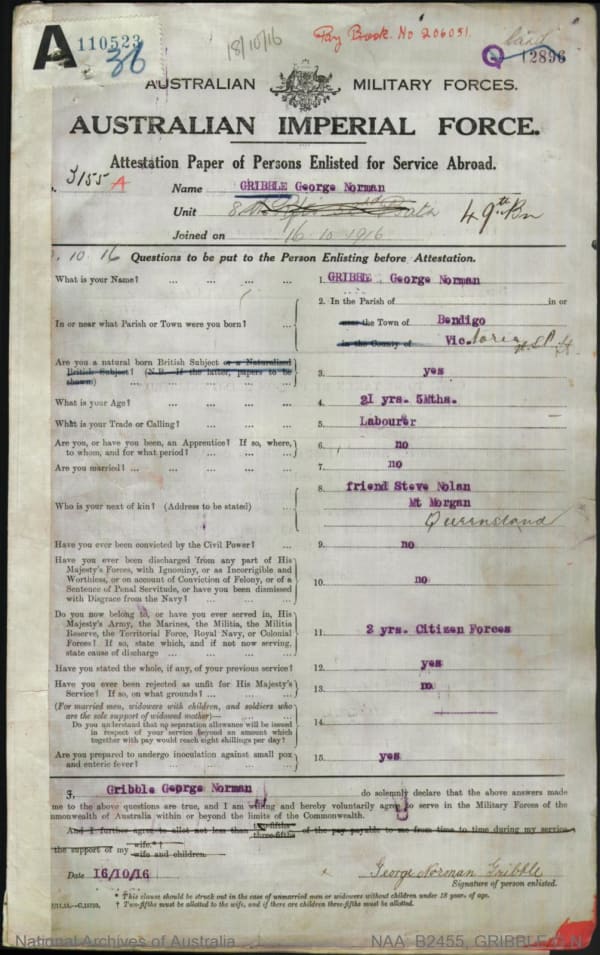 A 110523
36
18/10/16
Pay Book. No 206051.
Q 12896
AUSTRALIAN MILITARY FORCES.
AUSTRALIAN IMPERIAL FORCE.
Attestation Paper of Persons Enlisted for Service Abroad.
3155 A
Name GRIBBLE George Norman
Unit 49th Bn
Joined on 16.10.1916
10 16 Questions to be put to the Person Enlisting before Attestation.
What is your Name? ... ... ... ... 1. GRIBBLE, George Norman
In or near what Parish or Town were you born? ... 2. In the Parish of in or
near the Town of Bendigo
in the County of Victoria
Are you a natural born British Subject or a Naturalized
British Subject? (N.B. If the latter, papers to be
shown) ... ... ... ... 3. yes
What is your Age? ... ... ... ... 4. 21 yrs. 5Mths.
What is your Trade or Calling? ... ... ... 5. Labourer
Are you, or have you been, an Apprentice? If so, where,
to whom, and for what period? ... ... ... 6. no
Are you married? ... ... ... ... 7. no
Who is your next of kin? (Address to be stated) ... 8. friend Steve Nolan
Mt Morgan
Queensland
Have you ever been convicted by the Civil Power? ... 9. no
Have you ever been discharged from any part of His
Majesty's Forces, with Ignominy, or as Incorrigible and
Worthless, or on account of Conviction of Felony, or of a
Sentence of Penal Servitude, or have you been dismissed
with Disgrace from the Navy? ... ... ... 10. no
Do you now belong to, or have you ever served in, His
Majesty's Army, the Marines, the Militia, the Militia
Reserve, the Territorial Force, Royal Navy, or Colonial
Forces? If so, state which, and if not now serving,
state cause of discharge ... ... ... 11. 2 yrs. Citizen Forces
Have you stated the whole, if any, of your previous service? 12. yes
Have you ever been rejected as unfit for His Majesty's
Service? If so, on what grounds? ... ... ... 13. no
(For married men, widowers with children, and soldiers who
are the sole support of widowed mother)—
Do you understand that no separation allowance will be issued
in respect of your service beyond an amount which
together with pay would reach eight shillings per day? 14.
Are you prepared to undergo inoculation against small pox
and enteric fever? ... ... ... 15. yes
I, Gribble George Norman do solemnly declare that the above answers made
me to the above questions are true, and I am willing and hereby voluntarily agree to serve in the Military Forces of the
mmonwealth of Australia within or beyond the limits of the Commonwealth.
And I further agree to allot not less than two-fifths three-fifths of the pay payable to me from time to time during my service
the support of my wife.*†
wife and children.
Date 16/10/16 George Norman Gribble
Signature of person enlisted.
* This clause should be struck out in the case of unmarried men or widowers without children under 18 years of age.
† Two-fifths must be allotted to the wife, and if there are children three-fifths must be allotted.
National Archives of Australia NAA: B2455, GRIBBLE G N